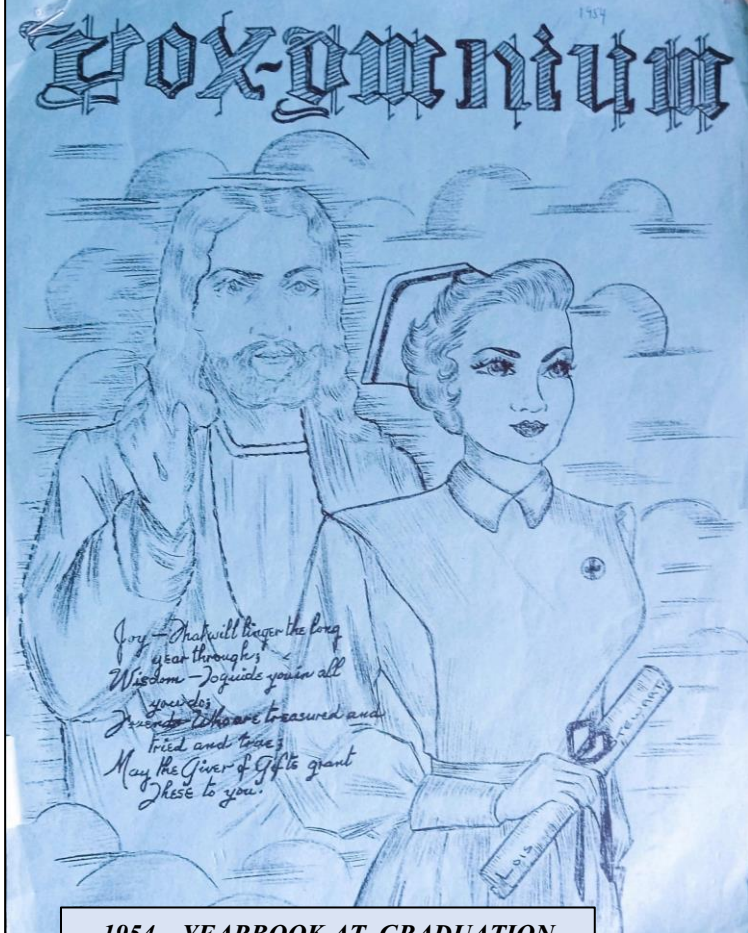 1954
Vox-Omnium
Joy – That will linger the long
year through;
Wisdom – To guide you in all
you do;
Friends Who are treasured and
tried and true;
May the Giver of Gifts grant
These to you.
STEWART
LOIS
1954 YEARBOOK AT GRADUATION